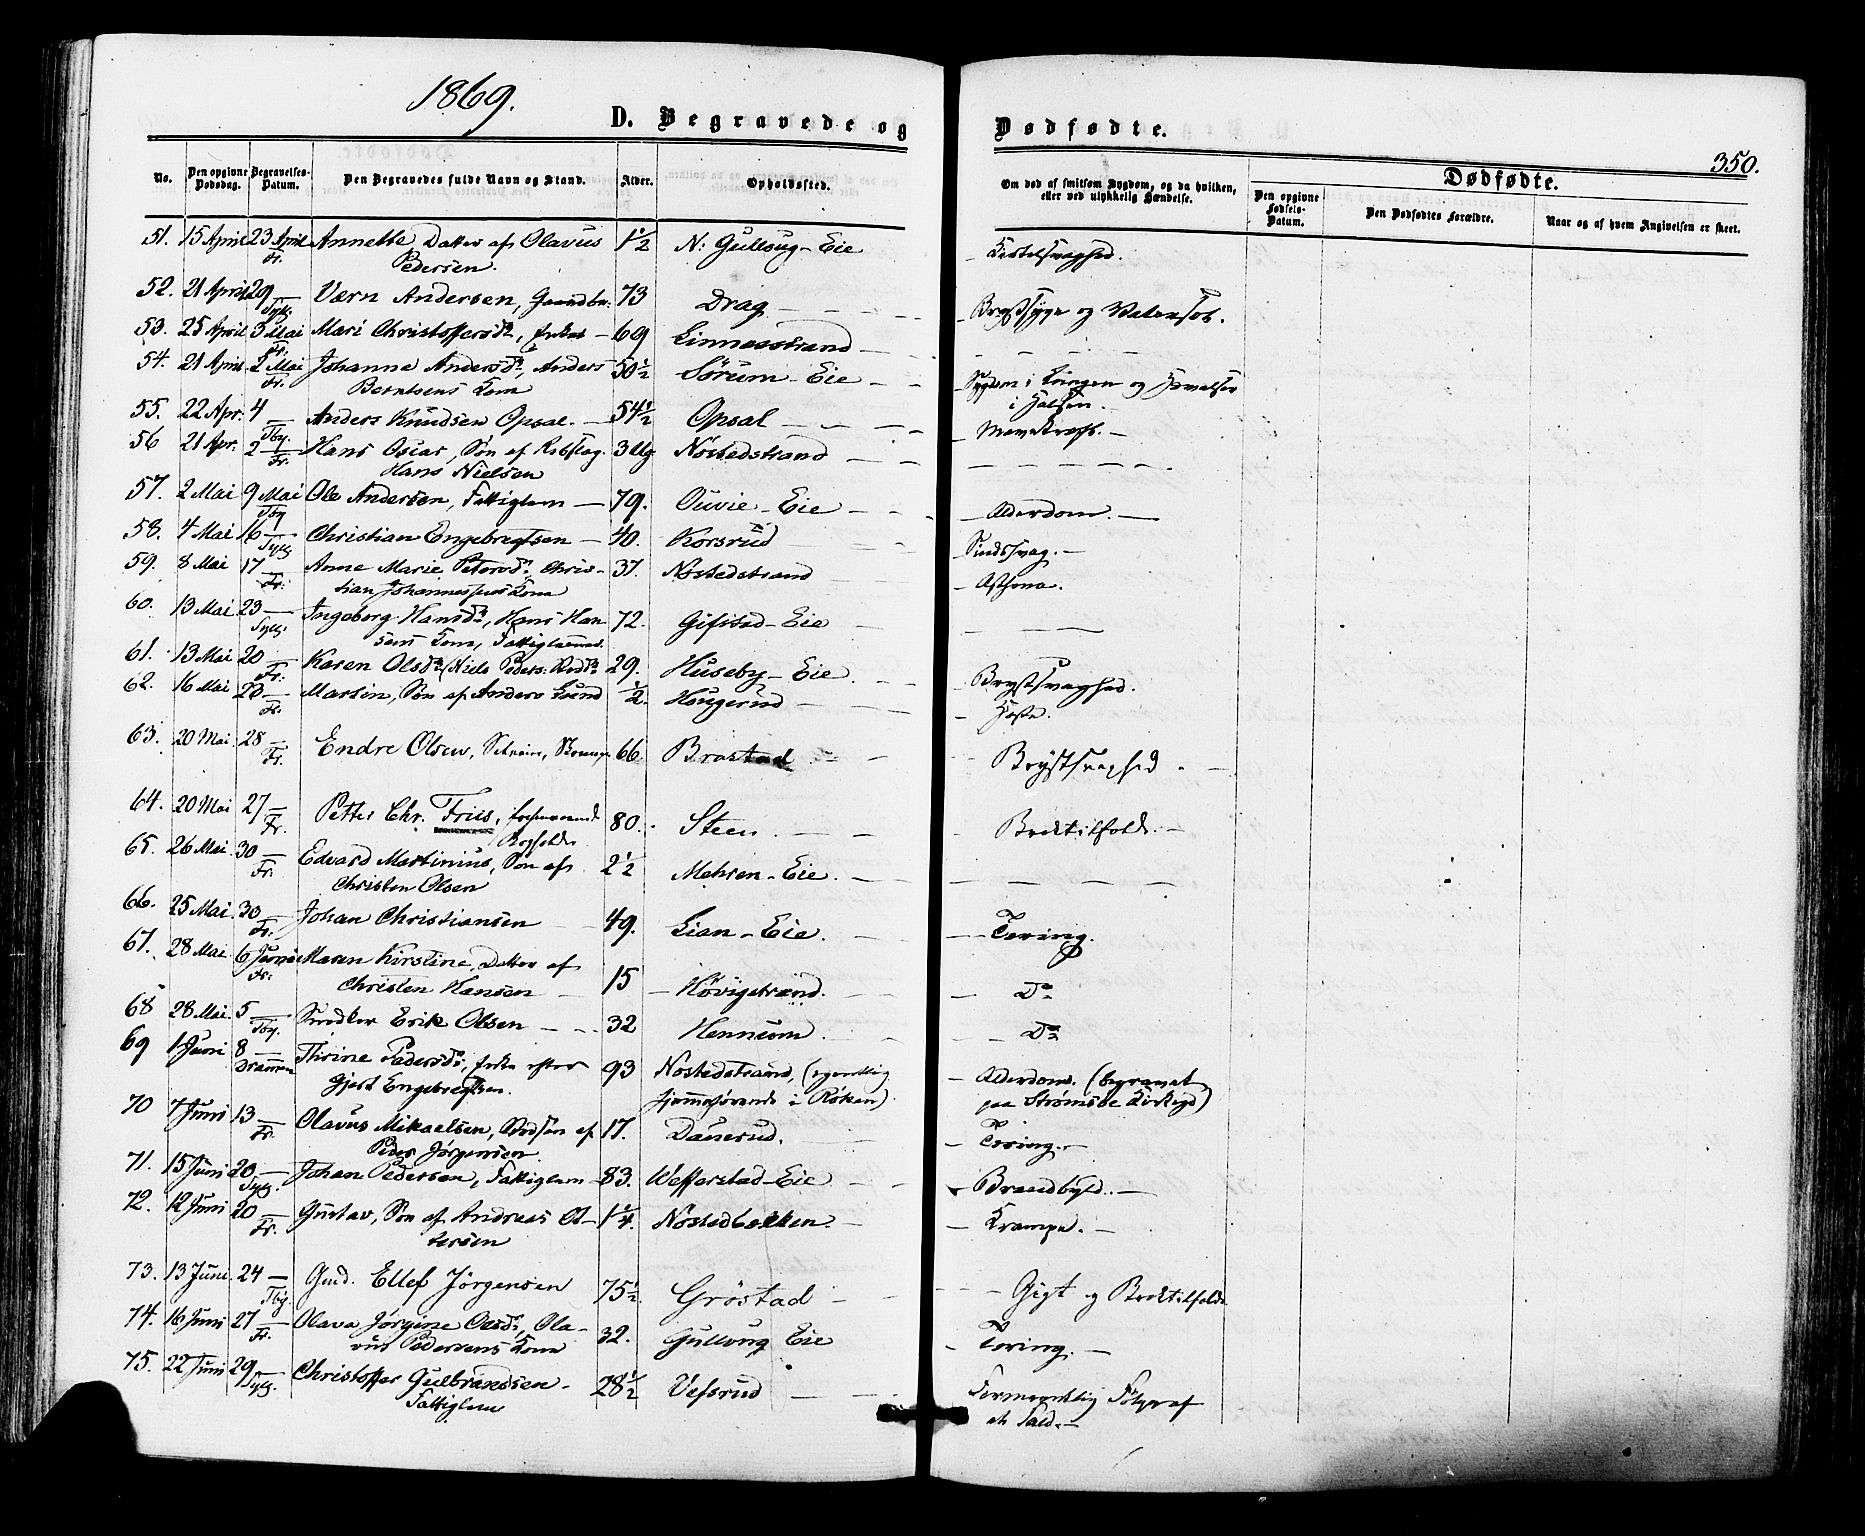 1869.
D. Begravede og
Dødfødte.
350.
No.
Den opgivne Dødsdag.
Begravelses-Datum.
Den Begravedes fulde Navn og Stand.
Alder.
Opholdssted.
Om død af smitsom Sygdom, og da hvilken, eller ved ulykkelig Hændelse.
Dødfødte.
Den opgivne Fødsels-Datum.
Den Dødfødtes Forældre.
Naar og af hvem Angivelsen er skeet.
51. 15 April 23 April Annette, Datter af Olavus 1 1/2 N: Gullaug-Eie Kirtelsvaghed.
Fr. Pedersen.
52. 21 April 29 Værn Andersen, 73 Drag Brystsyge og Vatersot.
Sylg.
53. 25 April 3 Mai Mari Christoffersdr, Enke 69 Linnesstrand
Fr.
54. 21 April 2 Mai Johanne Andersdr, Anders 50 1/2 Sørum-Eie Sygdom i Lungen og Hævelser
Fr. Berntsens Kone i Halsen.
55. 22 Apr. 4 Anders Knudsen Opsal. 54 1/2 Opsal Mavekræft.
Tby.
56 21 Apr. 2 Hans Oscar, Søn af 3 Ug Nøstedstrand
Fr. Hans Nielsen
57. 2 Mai 9 Mai Ole Andersen, Fattiglem 79. Ouvie-Eie Alderdom.
Tby
58. 4 Mai 16 Christian Engebregtsen 40. Korsrud Sindssvag.
Sylg
59. 8 Mai 17 Anne Marie Petersdr Chris- 37. Nøstedstrand Asthma.
Fr. tian Johannessens Kone
60. 13 Mai 23 Ingeborg Hansdr, Hans Han 72. Gifstad-Eie
Sylg. sens Kone, Fattiglemmer.
61. 13 Mai 20 Karen Olsdr (Niels Peders. 29. Huseby-Eie Brystsvaghed.
Fr.
62. 16 Mai 23 Martin, Søn af Anders Lund 1/2. Hougerud Hoste.
Fr.
63. 20 Mai 28 Endre Olsen, 66 Brastad Brystsvaghed.
Fr.
64. 20 Mai 27 Petter Chr. Friis, forhenværende 80. Steen. Bristilfælde.
Fr. Bogholder
65. 26 Mai 30 Edvard Martinius, Søn af 2 1/2 Mehren-Eie.
Fr. Christen Olsen
66. 25 Mai 30 Johan Christiansen 49. Lian-Eie. Tæring.
Fr.
67. 28 Mai 6 Juni Maren Kirstine, Datter af
Fr. Christen Hansen 15 Høvigstrand. Do
68 28 Mai. 5 Snedker Erik Olsen 32 Hennum. Do
Tby.
69 1 Juni 8 Thrine Pedersdr, Enke efter 93 Nøstedstrand, (egentlig Alderdom. (begravet
Drammen Gjert Engebregtsen. hjemmehørende i Røken). paa Strømsøe Kirkegd)
70 7 Juni 13 Olavus Mikaelsen, Stedsøn af 17. Danerud. Tæring.
Fr. Peder Jørgensen
71. 15 Juni 20 Johan Pedersen, Fattiglem 83. Wefferstad-Eie Brandbyld.
Sylg.
72. 12 Juni 20 Gustav, Søn af Andreas Ot- 1 1/4. Nøstedbakken. Krampe.
Fr. tersen
73. 13 Juni. 24 Gmd. Ellef Jørgensen 75 1/2. Grøstad Gigt og Bristilfælde
Tby.
74. 16 Juni 27 Olava Jørgine Olsdr, Ola- 32. Gullaug Eie Tæring.
Fr. vus Pedersens Kone
75. 22 Juni 29 Christoffer Gulbrandsen 28 1/2 Vefsrud Formeentlig Følger af
Sylg. Fattiglem et Fald.